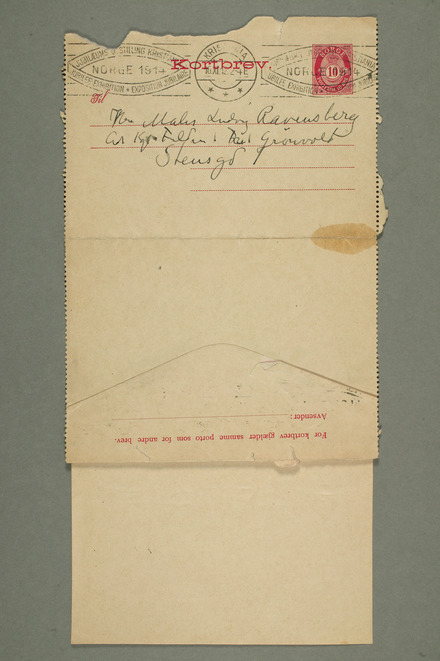 JUBILÆUMSUDSTILLING KRISTIANIA
NORGE 1914
JUBILEE EXHIBITION ★ EXPOSITION JUBILAIRE
KRISTIANIA
NORGE 1914
NORGE
10
Kortbrev.
Til
Herr Maler Ludvig Ravensberg
Grönvold
Stensgd
Avsender:
For kortbrev gjælder samme porto som for andre brev.